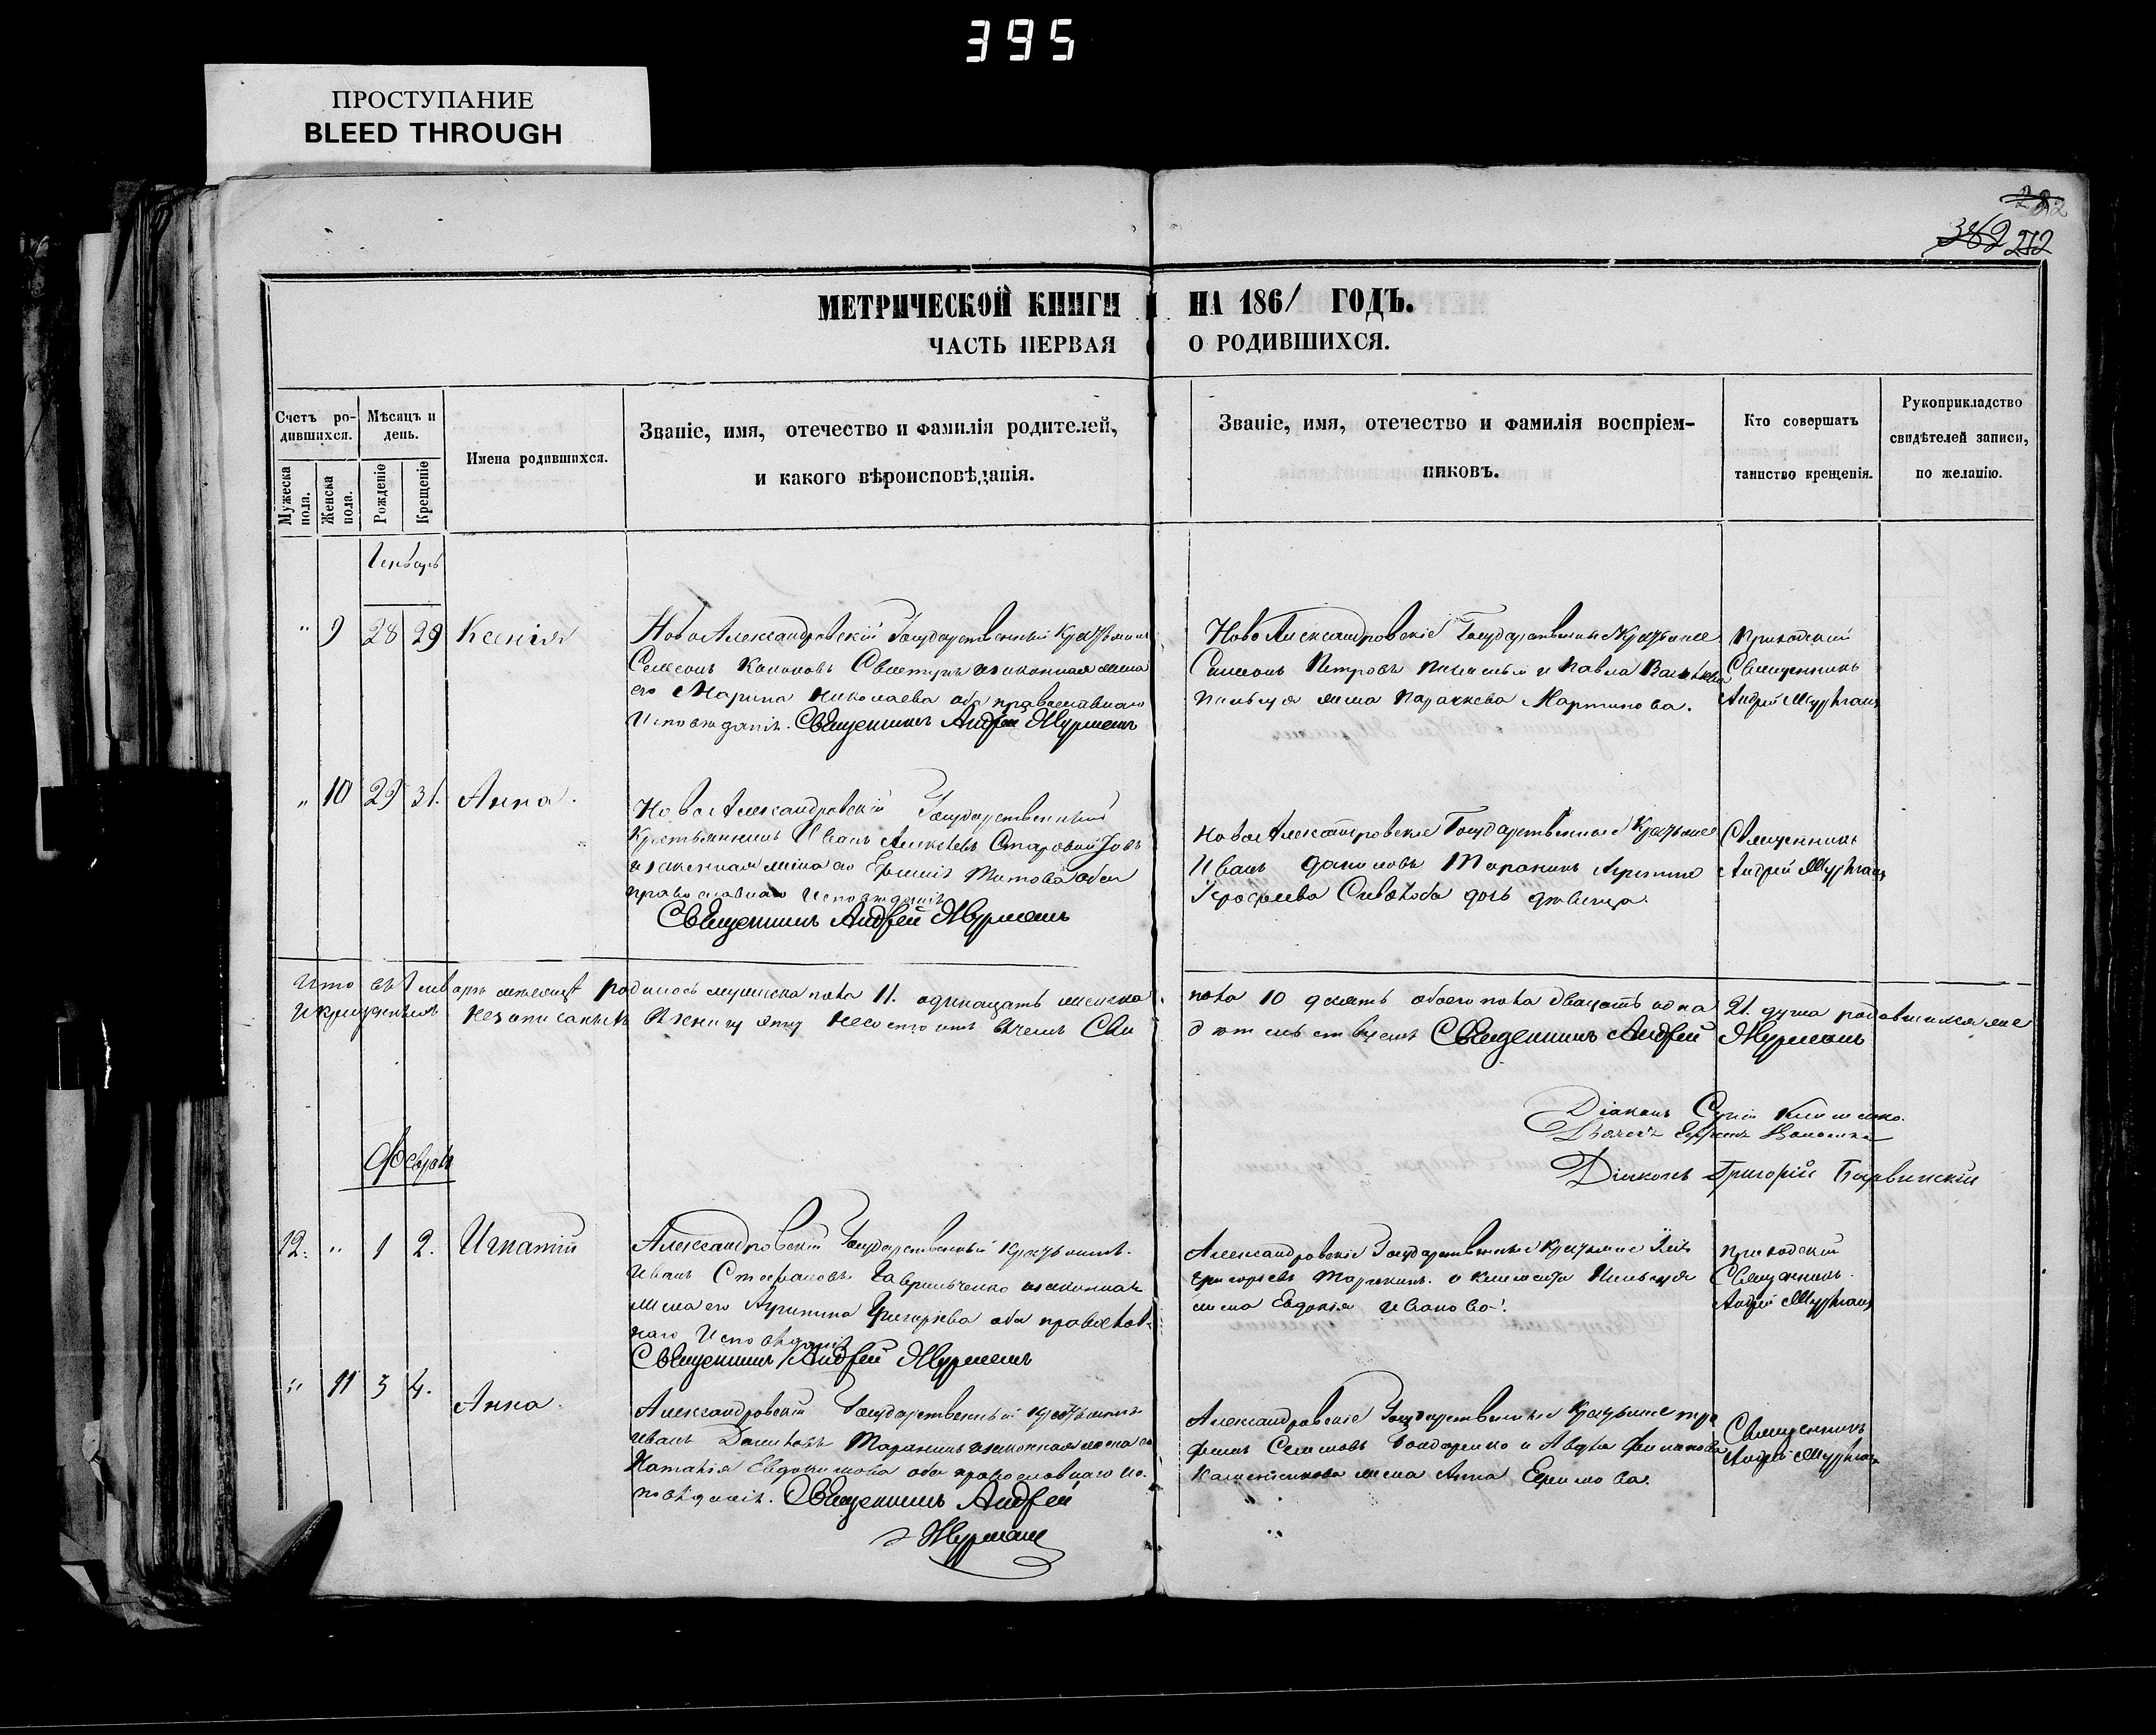 395
ПРОСТУПАНИЕ
BLEED THROUGH
282
362 212
МЕТРИЧЕСКОЙ КНИГИ НА 1861 ГОДЪ.
ЧАСТЬ ПЕРВАЯ О РОДИВШИХСЯ.
Счетъ ро-
дившихся.
Мужеска пола.
Женска пола.
Мѣсяцъ и
день.
Рожденіе
Крещеніе
Имена родившихся.
Званіе, имя, отечество и фамилія родителей,
и какого вѣроисповѣданія.
Званіе, имя, отечество и фамилія воспріем-
никовъ.
Кто совершалъ
таинство крещенія.
Рукоприкладство
свидѣтелей записи,
по желанію.
Генварь
" 9 28 29 Ксенія
НовоАлександровскій Государственный Крестьянинъ
Семеонъ Кононовъ законная жена
его Марина Николаева оба православнаго
Исповѣданія. Священникъ Андрей Журманъ
НовоАлександровскіе Государственные Крестьяне
Симеонъ Петровъ и Павла
жена Параскева Мартинова.
Приходскій
Священникъ
Андрей Журманъ
" 10 29 31. Анна.
НовоАлександровскій Государственный
Крестьянинъ Иванъ Алексѣевъ
законная жена его Титова оба
православнаго Исповѣданія
Священникъ Андрей Журманъ
НовоАлександровскіе Государственные Крестьяне
Иванъ Даниловъ Таранинъ
дочь дѣвица.
Священникъ
Андрей Журманъ
Итого въ Генварѣ мѣсяцѣ родилось мужеска пола 11. одинацать женска пола 10 десять обоего пола двацать одна 21. душа родившихся же
и крещенныхъ незаписанныхъ въ книгу эту не состоитъ въ чемъ Сви
дѣтельствуемъ Священникъ Андрей Журманъ
Діаконъ
Діаконъ Григорій Барвинскій
Февраль
12. " 1 2. Игнатій
Александровскій Государственный Крестьянинъ
Иванъ Стефановъ Гавриличенко законная
жена его Агрипина Григорьева оба православ-
наго Исповѣданія
Священникъ Андрей Журманъ
Александровскіе Государственные Крестьяне
Григорьевъ Таранинъ. и
жена Евдокія Иванова.
Приходскій
Священникъ
Андрей Журманъ
" 11 3 4. Анна.
Александровскій Государственный Крестьянинъ
Иванъ Даниловъ Таранинъ законная жена его
Наталія Евдокимова оба православнаго ис-
повѣданія. Священникъ Андрей
Журманъ
Александровскіе Государственные Крестьяне
Бондаренко и
жена Анна Ефимова.
Священникъ
Андрей Журманъ